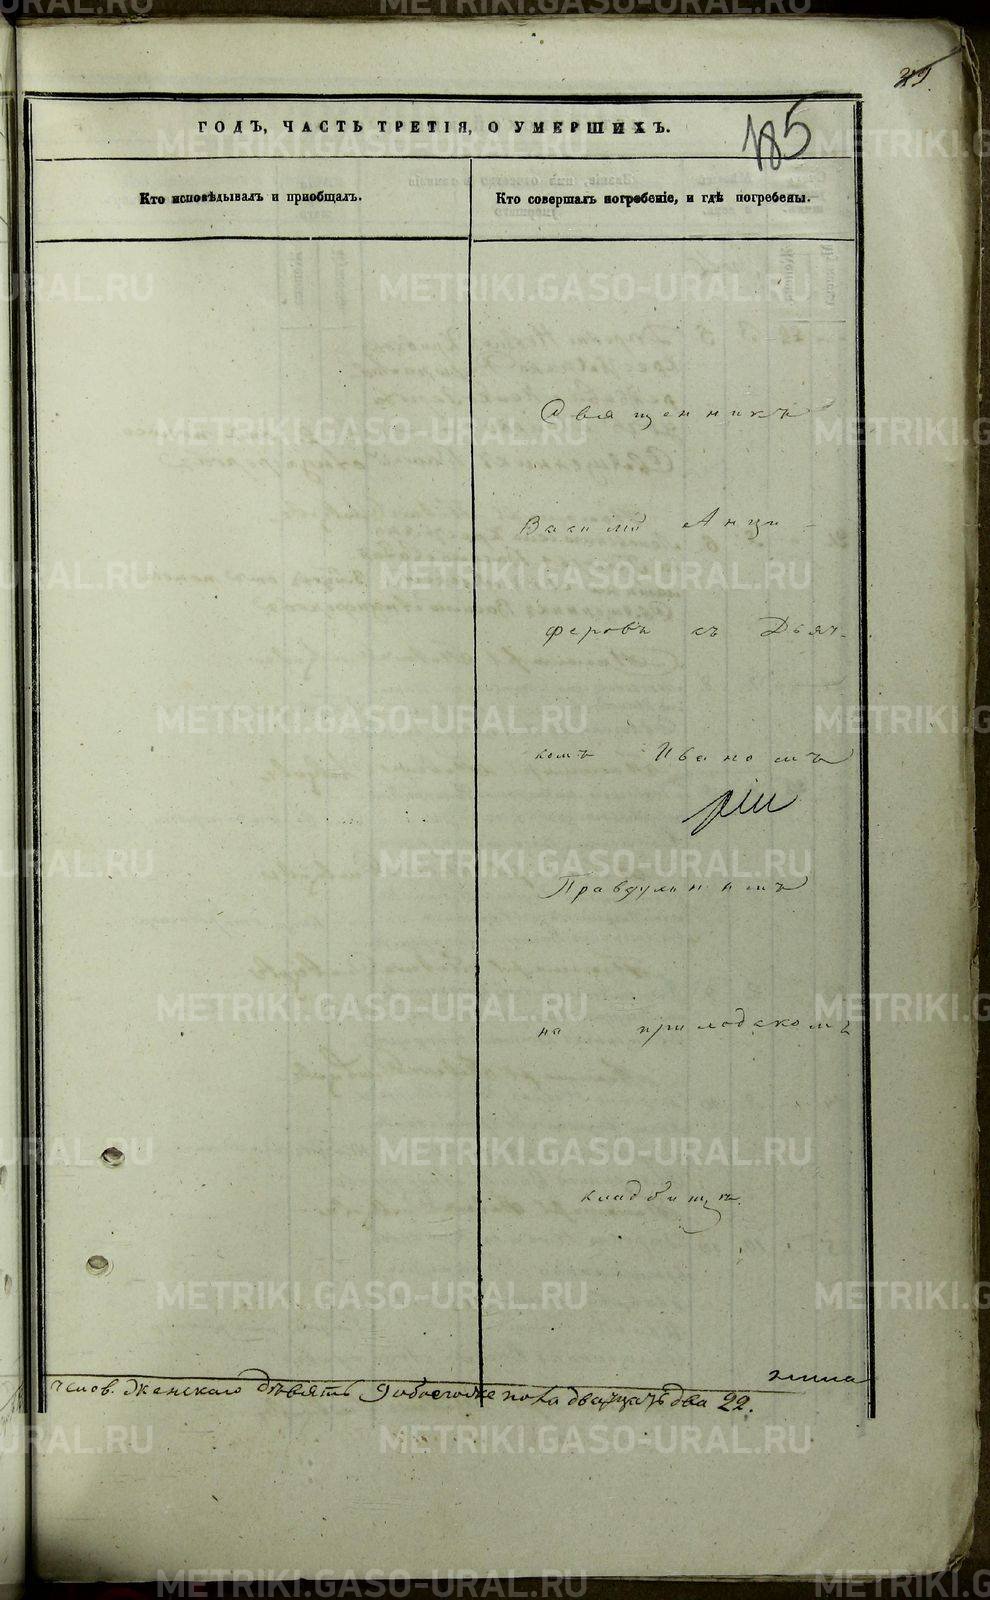 39.
185
ГОДЪ, ЧАСТЬ ТРЕТІЯ, О УМЕРШИХЪ.
Кто исповѣдывалъ и пріобщалъ.
Кто совершалъ погребеніе, и гдѣ погребены.
Священникъ
Василій Анци-
феровъ съ Дьяч-
комъ Иваномъ
Правдулинымъ
на приходскомъ
кладбищѣ.
челов. Женскаго дѣвять 9 обоего же пола двадцать два 22.
METRIKI.GASO-URAL.RU